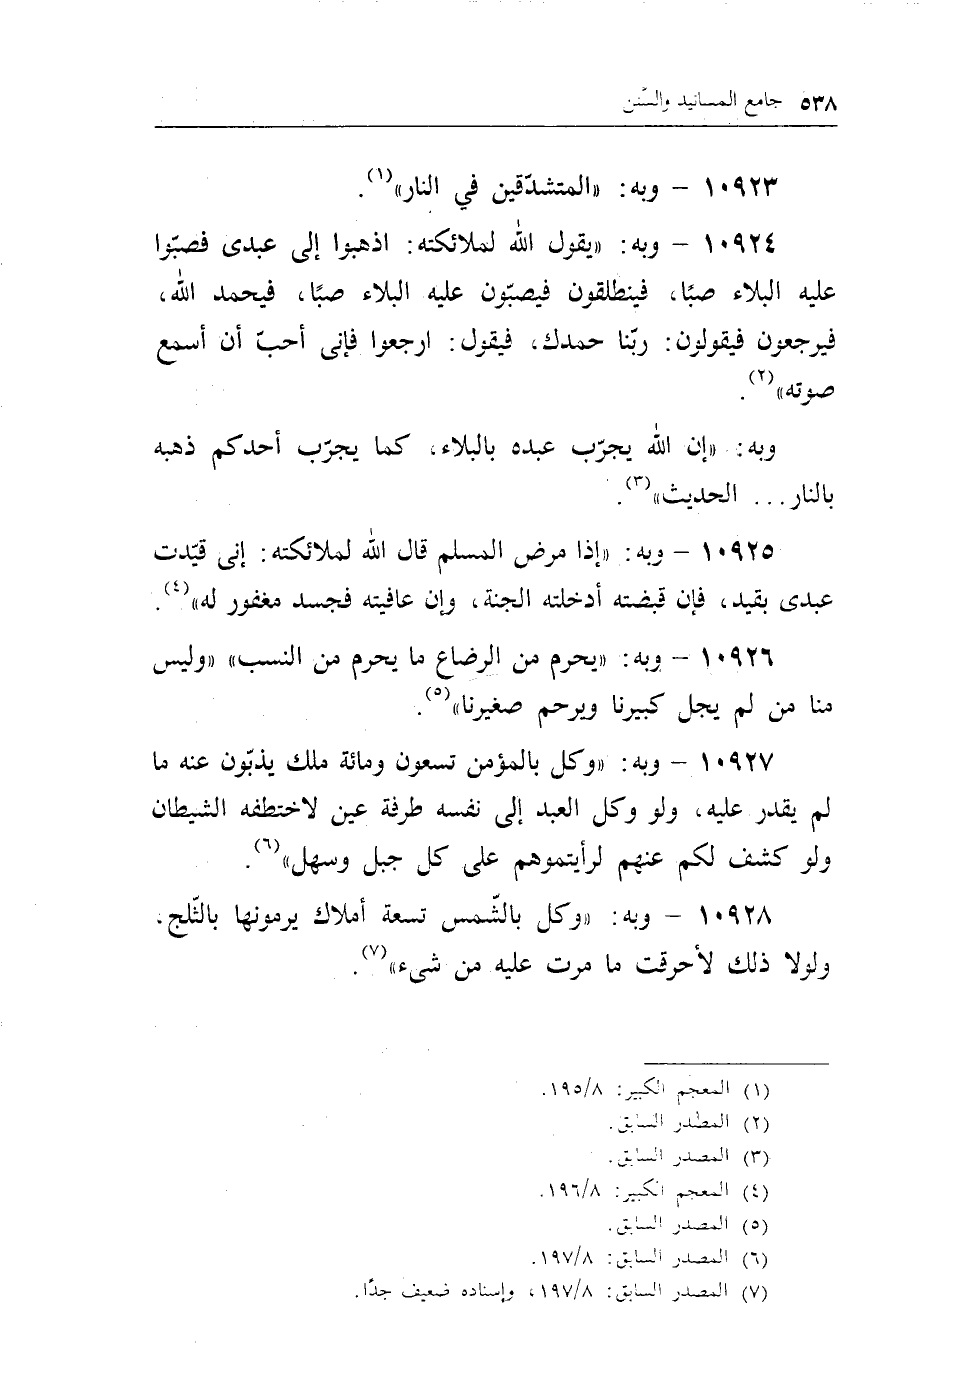 ٥٣٨ جامع المسانيد والسُّنن
١٠٩٢٣ - وبه: «المتشدّقين في النار»(١).
١٠٩٢٤ - وبه: «يقول الله لملائكته: اذهبوا إلى عبدى فصبّوا
عليه البلاء صبًا، فينطلقون فيصبّون عليه البلاء صبًا، فيحمد الله،
فيرجعون فيقولون: ربّنا حمدك، فيقول: ارجعوا فإنى أحبّ أن أسمع
صوته»(٢).
وبه: «إن الله يجرّب عبده بالبلاء، كما يجرّب أحدكم ذهبه
بالنار... الحديث»(٣).
١٠٩٢٥ - وبه: «إذا مرض المسلم قال الله لملائكته: إنى قيّدت
عبدى بقيد، فإن قبضته أدخلته الجنة، وإن عافيته فجسد مغفور له»(٤).
١٠٩٢٦ - وبه: «يحرم من الرضاع ما يحرم من النسب» «وليس
منا من لم يجل كبيرنا ويرحم صغيرنا»(٥).
١٠٩٢٧ - وبه: «وكل بالمؤمن تسعون ومائة ملك يذبّون عنه ما
لم يقدر عليه، ولو وكل العبد إلى نفسه طرفة عين لاختطفه الشيطان
ولو كشف لكم عنهم لرأيتموهم على كل جبل وسهل»(٦).
١٠٩٢٨ - وبه: «وكل بالشّمس تسعة أملاك يرمونها بالثّلج،
ولولا ذلك لأحرقت ما مرت عليه من شىء»(٧).
(١) المعجم الكبير: ١٩٥/٨.
(٢) المصدر السابق.
(٣) المصدر السابق.
(٤) المعجم الكبير: ١٩٦/٨.
(٥) المصدر السابق.
(٦) المصدر السابق: ١٩٧/٨.
(٧) المصدر السابق: ١٩٧/٨، وإسناده ضعيف جدًا.